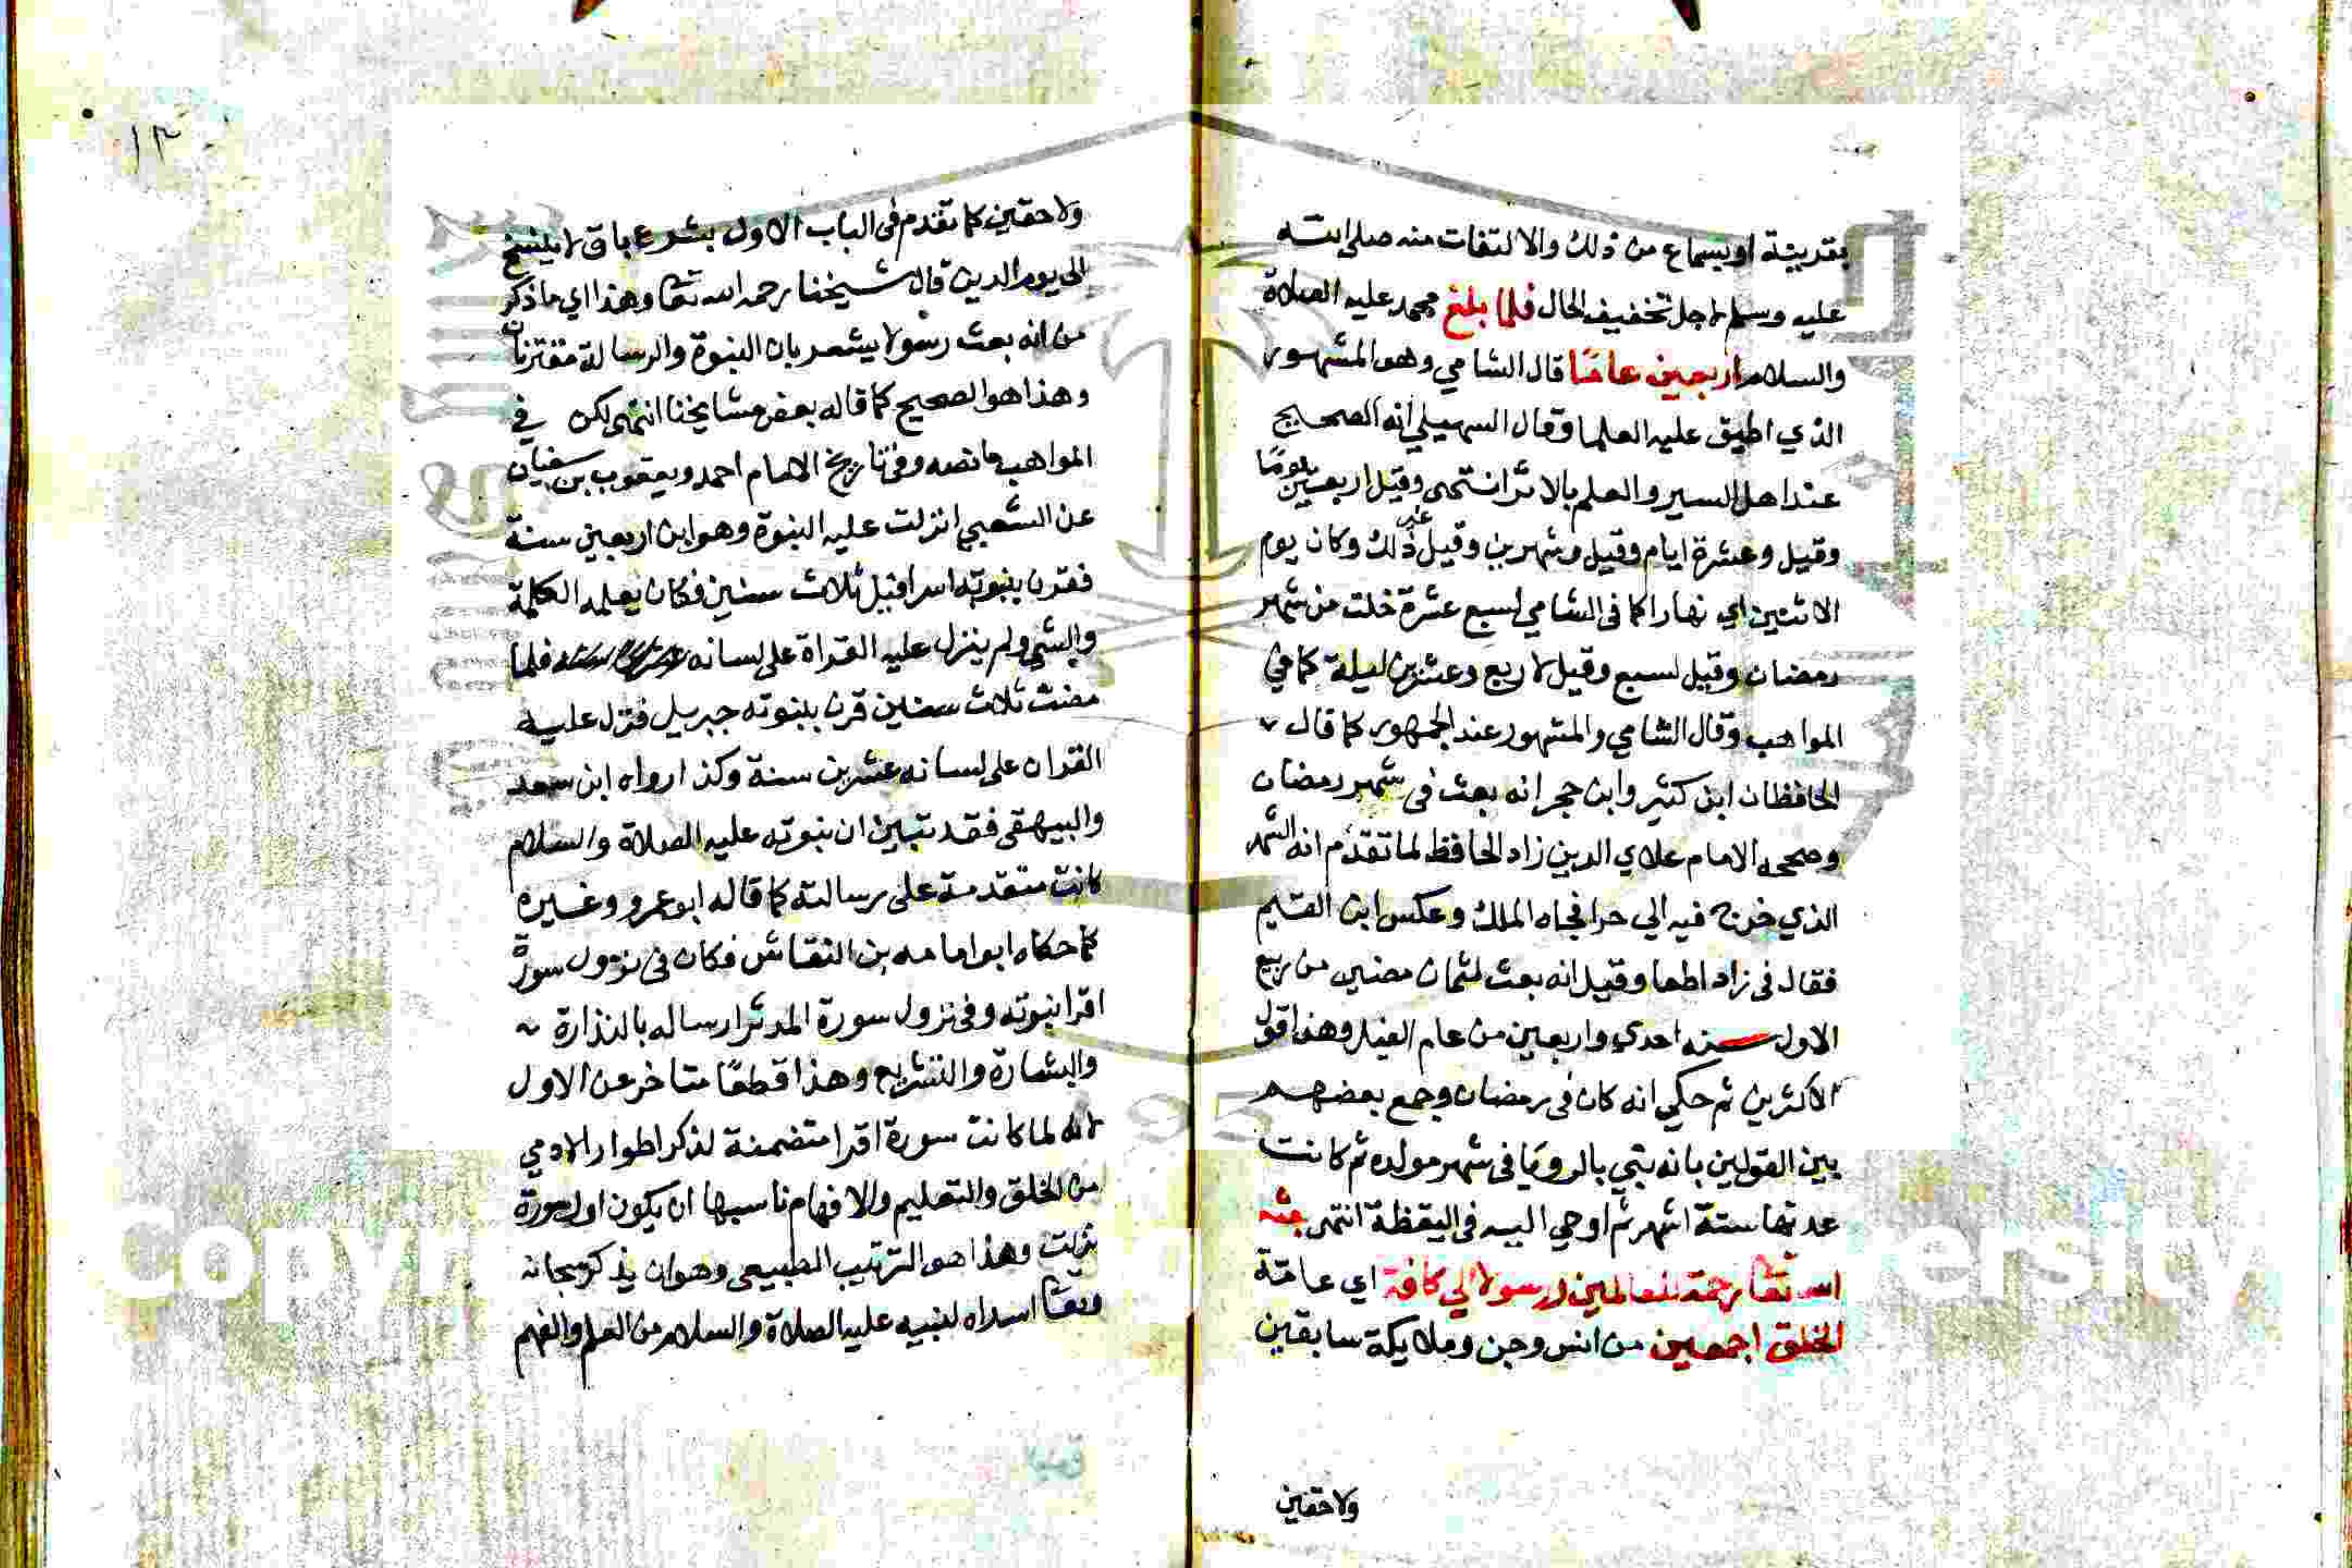 بقرينة او بسماع من ذلك والالتفات منه صلى الله
عليه وسلم لاجل تخفيف الحال فلما بلغ محمد عليه الصلاة
والسلام اربعين عاما قال الشامي وهو المشهور
الذي اطبق عليه العلما وقال السهيلي انه الصحيح
عند اهل السير والعلم بالاثر انتهى وقيل اربعين يوما
وقيل وعشرة ايام وقيل وشهرين وقيل غير ذلك وكان يوم
الاثنين اي نهارا كما في الشامي لسبع عشرة خلت من شهر
رمضان وقيل لسبع وقيل لاربع وعشرين ليلة كما في
المواهب وقال الشامي والمشهور عند الجمهور كما قال
الحافظان ابن كثير وابن حجر انه بعث في شهر رمضان
وصححه الامام علاي الدين زاد الحافظ لما تقدم انه الشهر
الذي خرج فيه الي حرا فجاه الملك وعكس ابن القيم
فقال في زاد وقيل انه بعث لثمان مضين من ربيع
الاول سنه احدي واربعين من عام الفيل وهذا قول
الاكثرين ثم حكي انه كان في رمضان وجمع بعضهم
بين القولين بانه نبي بالرويا في شهر مولده ثم كانت
عدتها ستة اشهر ثم اوحي اليه في اليقظة انتهى بعثه
الله تعا رحمة للعالمين ورسولا الي كافة اي عامة
الخلق اجمعين من انس وجن وملايكة سابقين
ولاحقين
١٣
ولاحقين كما تقدم في الباب الاول بشرع باق لا ينسخ
الي يوم الدين قال شيخنا رحمه الله تعا وهذا اي ما ذكر
من انه بعث رسولا يشعر بان النبوة والرسالة مقترنان
وهذا هو الصحيح كما قاله بعض مشايخنا انتهى لكن في
المواهب ما نصه وفي تاريخ الامام احمد ويعقوب بن سفيان
عن الشعبي انزلت عليه النبوة وهو ابن اربعين سنة
فقرن بنبوته اسرافيل ثلاث سنين فكان يعلمه الكلمة
والشي ولم ينزل عليه القراة على لسانه فلما
مضت ثلاث سنين قرن بنبوته جبريل فنزل عليه
القران على لسانه عشرين سنة وكذا رواه ابن سعد
والبيهقي فقد تبين ان نبوته عليه الصلاة والسلام
كانت متقدمة على رسالته كما قاله ابو عمرو وغيره
كما حكاه ابو امامه بن النقاش فكان في نزول سورة
اقرا نبوته وفي نزول سورة المدثر ارساله بالنذارة
والبشارة والتشريع وهذا قطعا متاخر عن الاول
لانه لما كانت سورة اقرا متضمنة لذكر اطوار الادمي
من الخلق والتعليم والافهام ناسبها ان يكون اول سورة
نزلت وهذا هو الترتيب الطبيعي وهو ان يذكر سبحانه
وتعا اسداه لنبيه عليه الصلاة والسلام من العلم والفهم